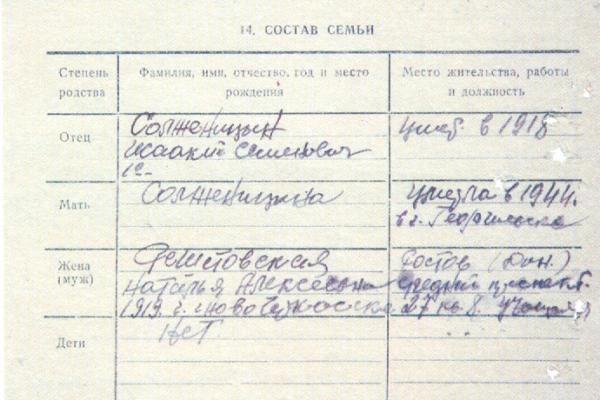 14. СОСТАВ СЕМЬИ
Степень родства
Фамилия, имя, отчество, год и место рождения
Место жительства, работы и должность
Отец
Солженицын
Исаакий Семенович
умер в 1918
Мать
Солженицына
умерла в 1944 г.
в г. Георгиевске
Жена (муж)
Решетовская
Наталья Алексеевна
1919 г. г. Новочеркасск
Ростов (Дон.)
средний проспект
27 кв 8.
Дети
Нет